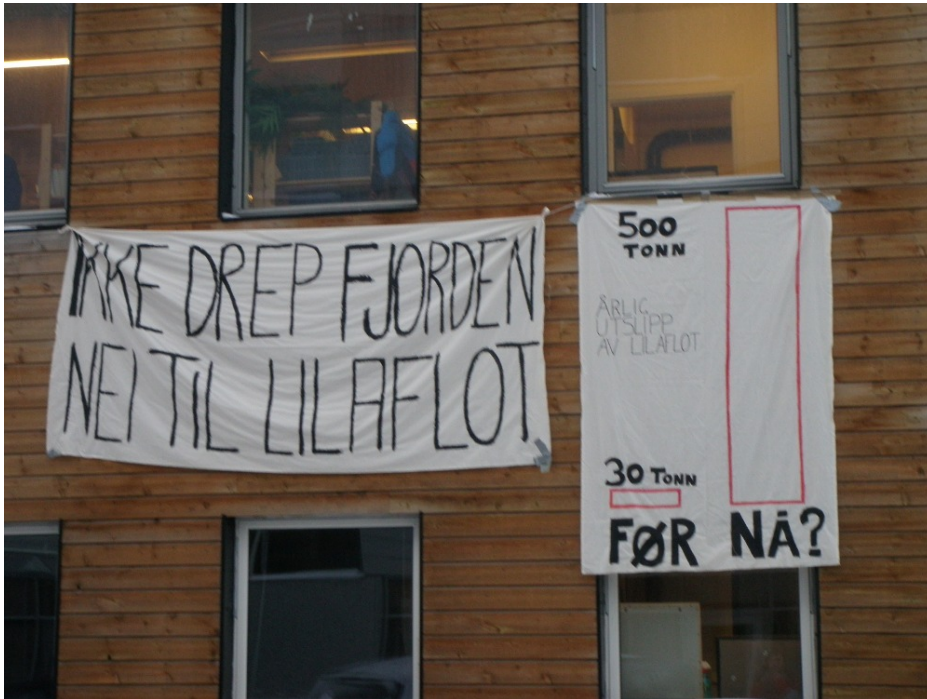 IKKE DREP FJORDEN
NEI TIL LILAFLOT
500
TONN
ÅRLIG
UTSLIPP
AV LILAFLOT
30 TONN
FØR NÅ?